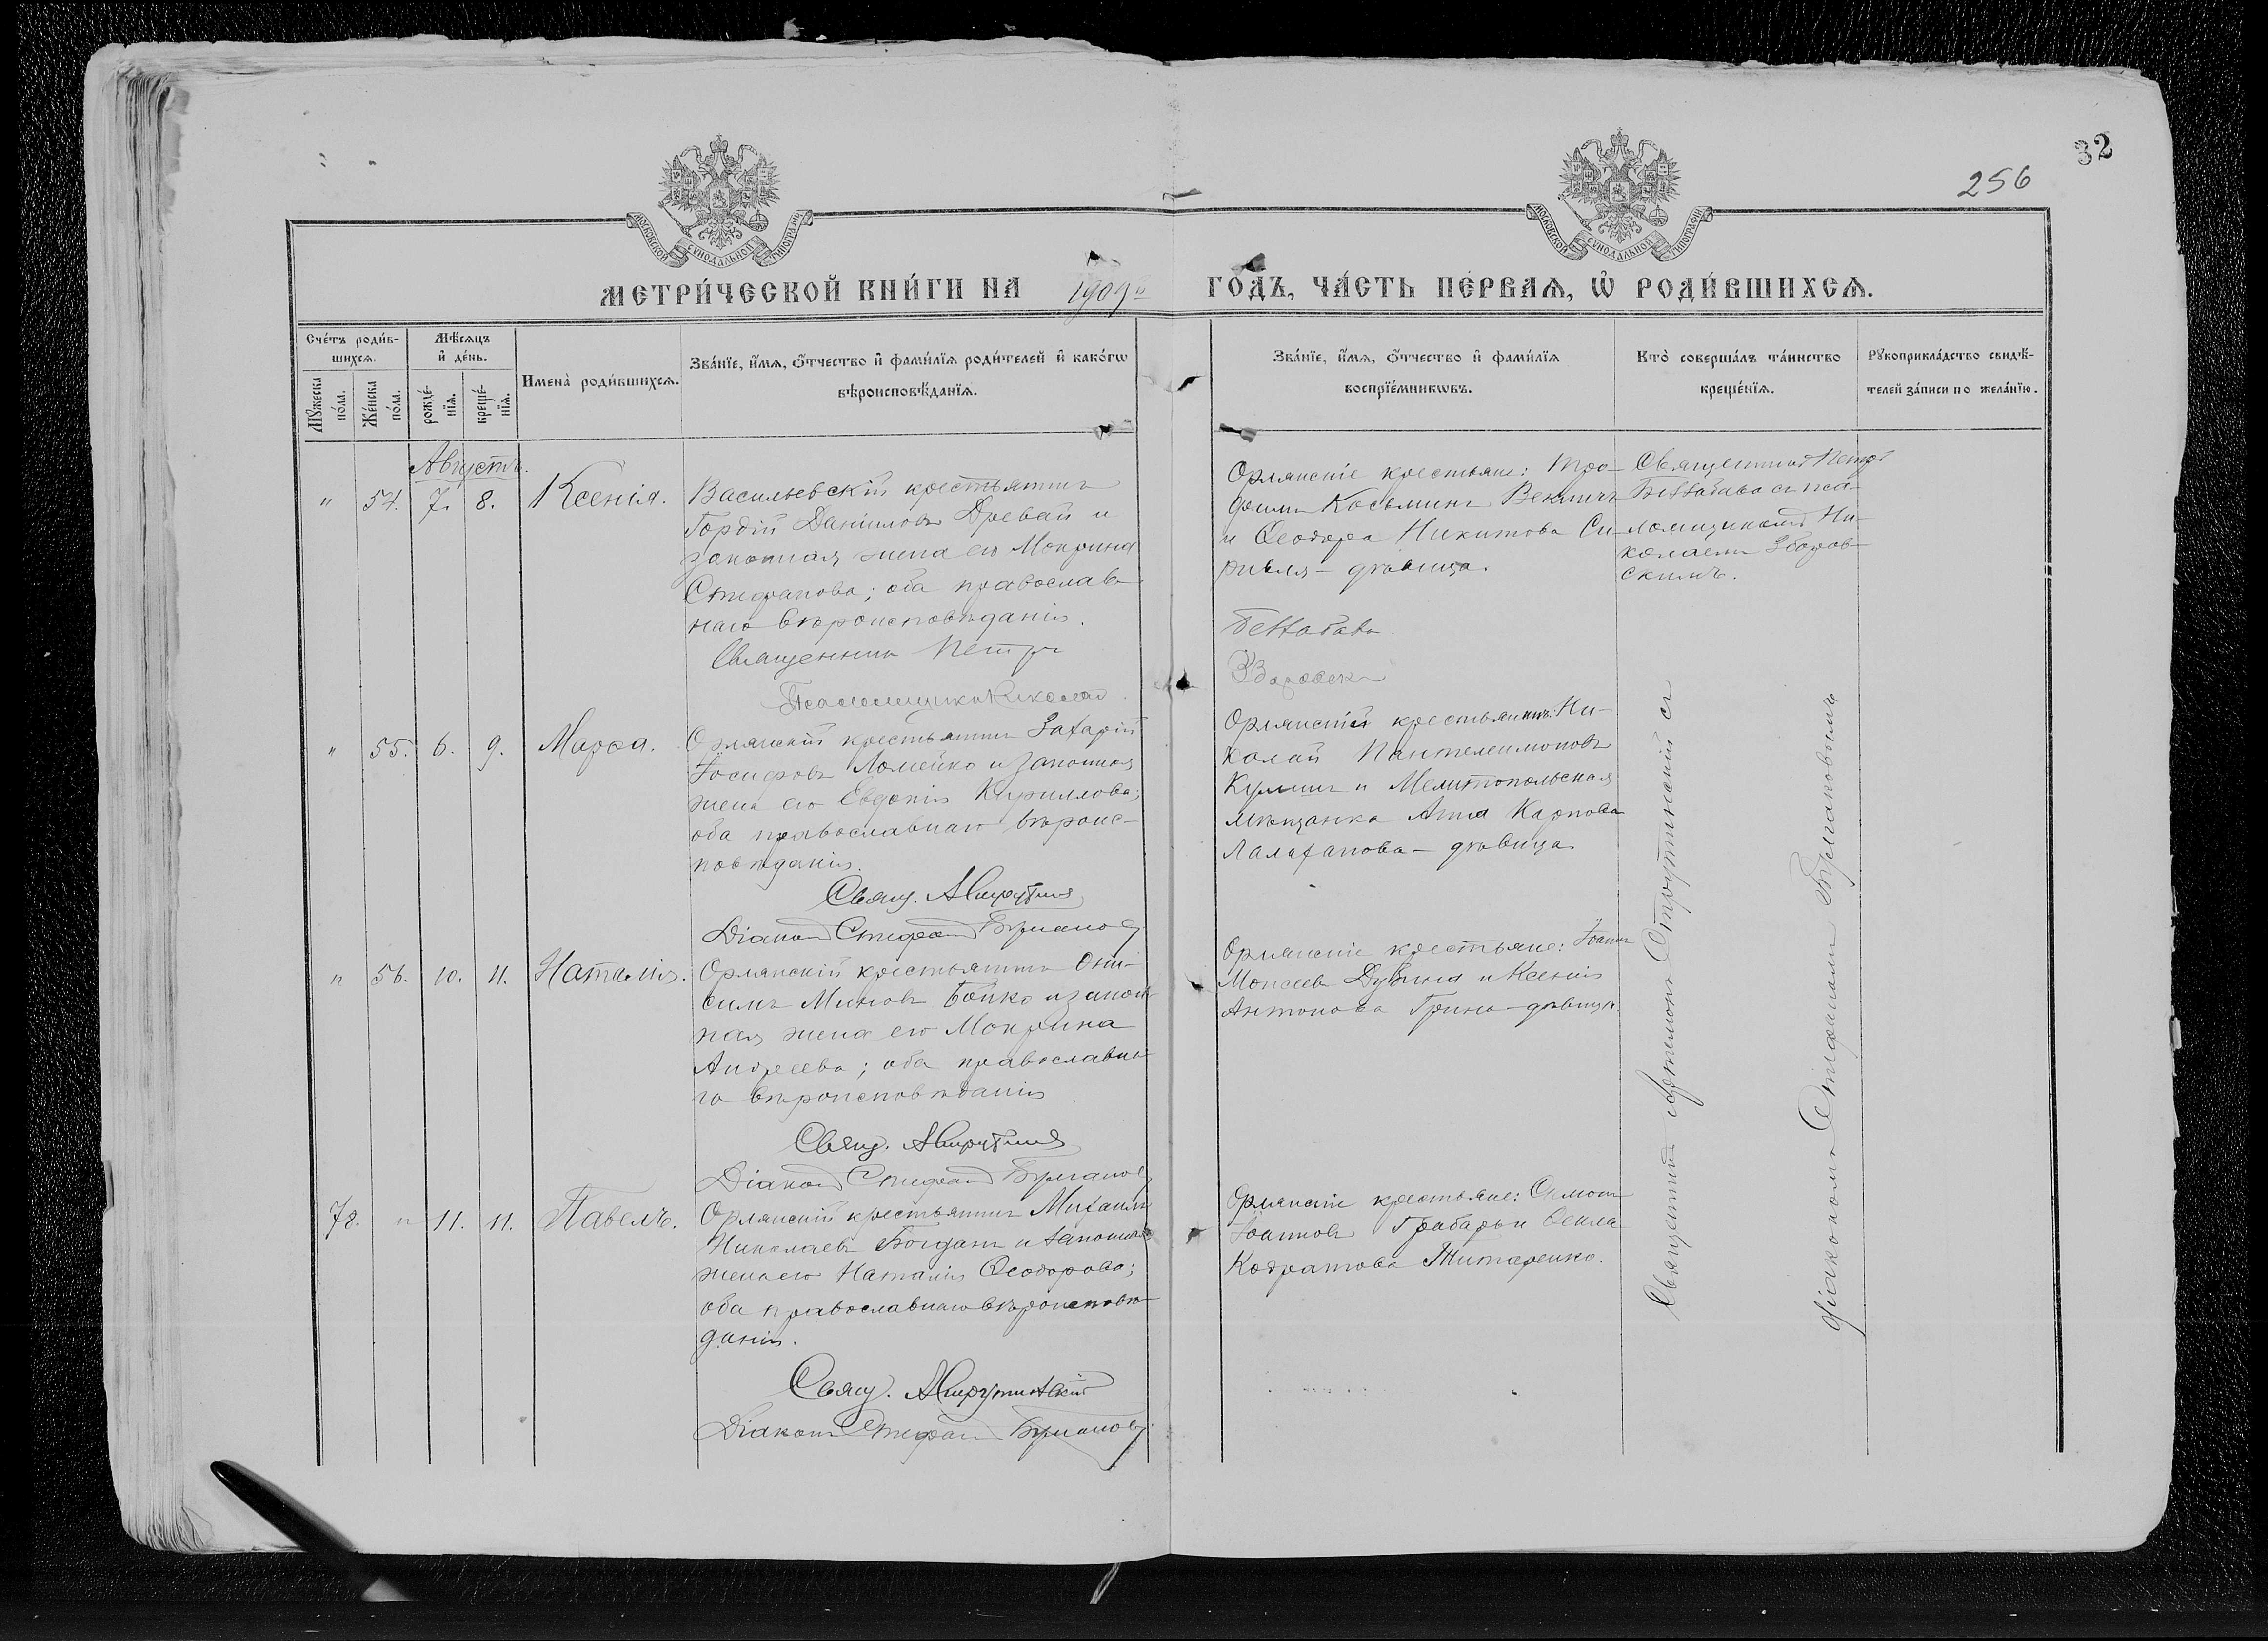 32
256
МОСКОВСКОЙ СѴНОДАЛЬНОЙ ТИПОГРАФІИ
МОСКОВСКОЙ СѴНОДАЛЬНОЙ ТИПОГРАФІИ
МЕТРИ́ЧЕСКОЙ КНИ́ГИ НА 1909й ГО́ДЪ, ЧА́СТЬ ПЕ́РВАѦ, Ѡ҆ РОДИ́ВШИХСѦ.
Сче́тъ роди́в-
шихсѧ.
Мꙋ́жеска по́ла.
Же́нска по́ла.
Мѣ́сѧцъ
и҆ де́нь.
рожде́-
нїѧ.
креще́-
нїѧ.
Имена̀ роди́вшихсѧ.
Зва́нїе, и҆́мѧ, ѻ҆́тчество и҆ фами́лїѧ роди́телей и҆ како́гѡ
вѣроисповѣ́данїѧ.
Зва́нїе, и҆́мѧ, ѻ҆́тчество и҆ фами́лїѧ
воспрїе́мникѡвъ.
Кто̀ соверша́лъ та́инство
креще́нїѧ.
Рꙋкоприкла́дство свидѣ́-
телей за́писи по жела́нїю.
Августъ.
" 54. 7. 8. Ксенія.
Васильевскій крестьянинъ
Гордій Даниловъ Древаль и
законная жена его Мокрина
Стефанова; оба православ-
наго вѣроисповѣданія.
Священникъ Петръ
Псаломщикъ Николай
Орлянскіе крестьяне: Тро-
фимъ Косьминъ Веклич
и Ѳеодора Никитова Си-
дѣвица.
Священникъ Петръ
съ пса-
ломщикомъ Ни-
колаемъ Зборов-
скимъ.
" 55. 6. 9. Марѳа.
Орлянскій крестьянинъ Захарій
Іосифовъ Ломейко и законная
жена его Евдокія Кириллова;
оба православнаго вѣроис-
повѣданія.
Свящ.
Діаконъ Стефанъ Бурлановъ
Орлянскій крестьянинъ: Ни-
колай Пантелеимоновъ
и Мелитопольская
мѣщанка Анна Карпова
Малаханова - дѣвица
" 56. 10. 11. Наталія.
Орлянскій крестьянинъ Они-
симъ Миновъ Бойко и закон-
ная жена его Мокрина
Андреева; оба православна-
го вѣроисповѣданія
Свящ.
Діаконъ Стефанъ Бурлановъ
Орлянскіе крестьяне: Іоаннъ
Моисеевъ Дубина и Ксенія
Антонова Грина - дѣвица
78. " 11. 11. Павелъ.
Орлянскій крестьянинъ Михаилъ
Николаевъ Богданъ и законная
жена его Наталія Ѳеодорова;
оба православнаго вѣроисповѣ-
данія.
Свящ.
Діаконъ Стефанъ Бурлановъ
Орлянскіе крестьяне: Симонъ
Іоанновъ Грабарь и Ѳекла
Кодратова Титаренко.
Священникъ Струтинскій съ
діакономъ Стефаномъ Бурлановымъ